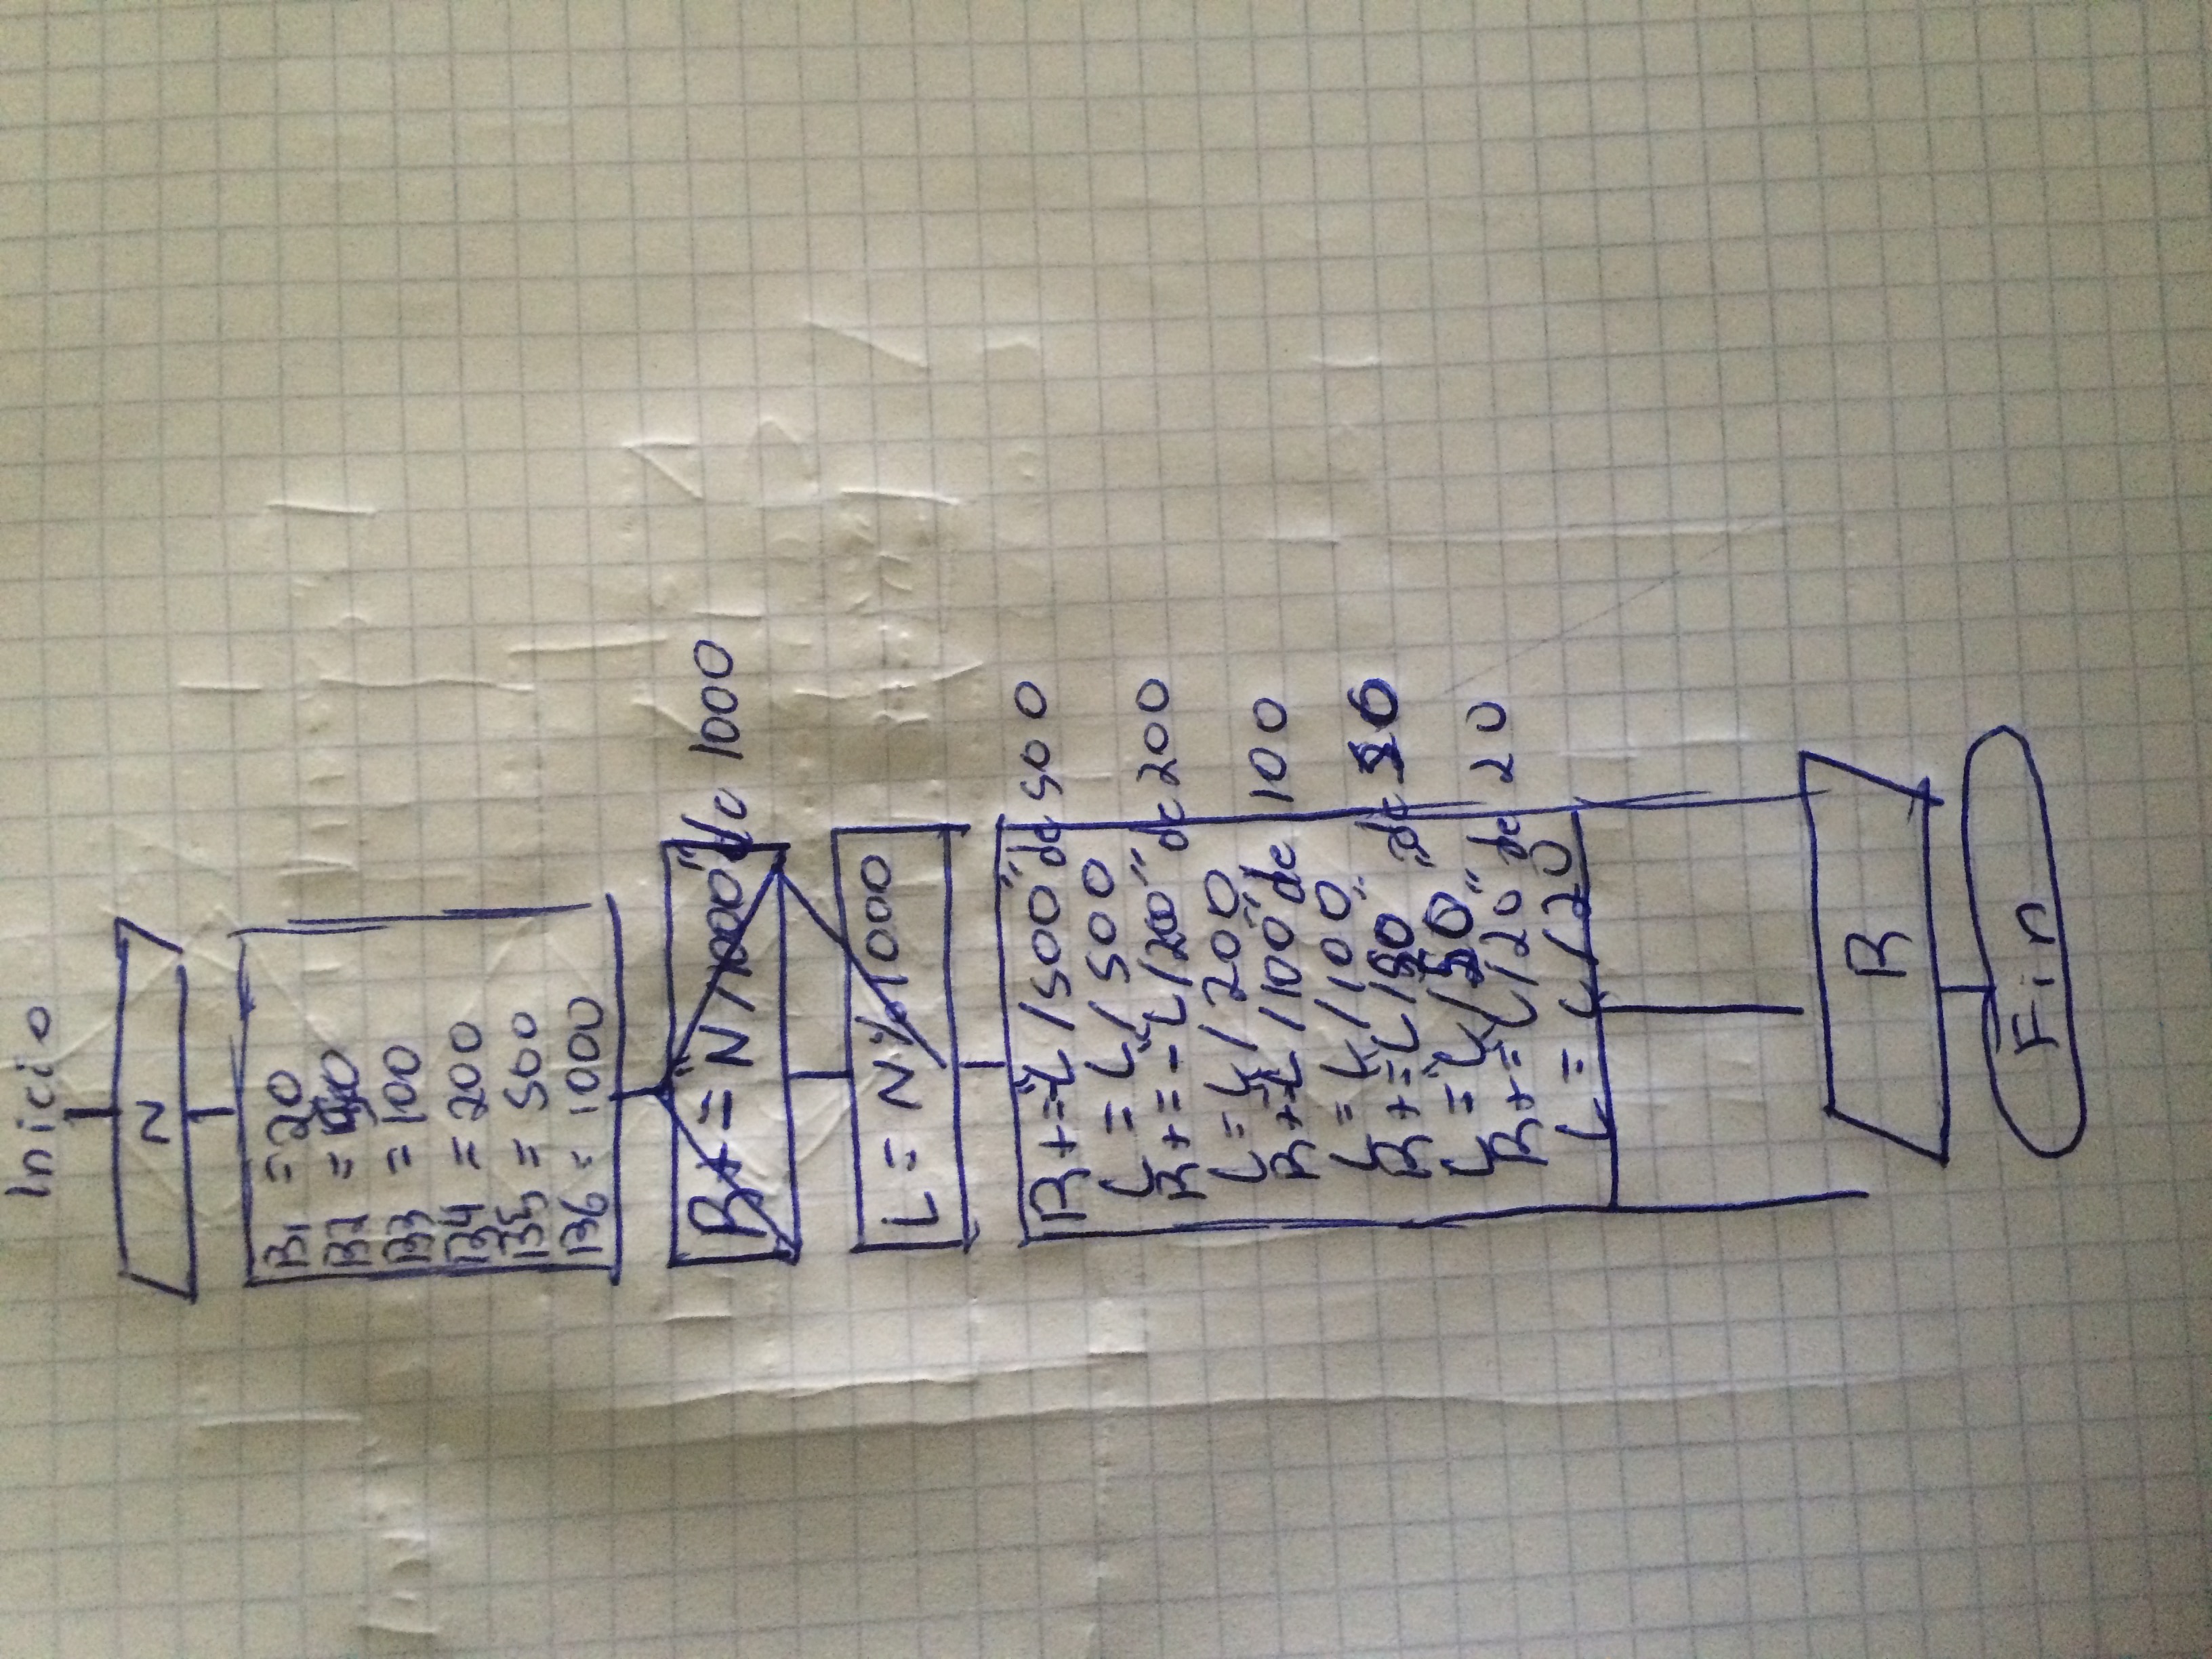 Inicio
N
B1 = 20
B2 = 50
B3 = 100
B4 = 200
B5 = 500
B6 = 1000
R+="N/1000" de 1000
L = N%1000
R+="L/500" de 500
L = L/500
R+="L/200" de 200
L = L/200
R+="L/100" de 100
L = L/100
R+="L/50" de 50
L = L/50
R+="L/20" de 20
L = L/20
R
Fin